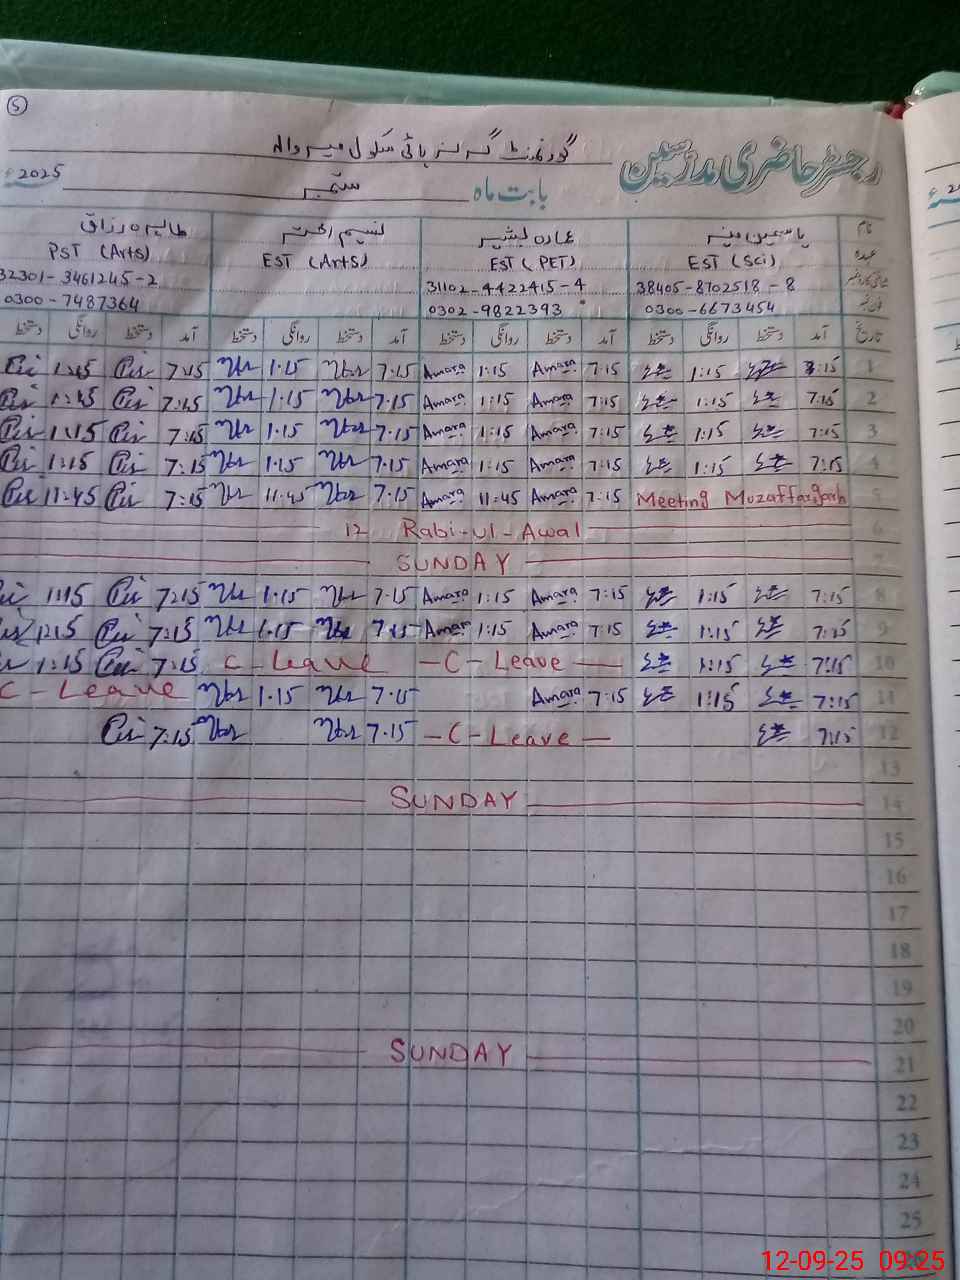 5
گورنمنٹ گرلز ہائی سکول میر والہ
رجسٹر حاضری مدرسین
بابت ماہ ستمبر 2025ء
نام یاسمین منیر عمارہ بشیر نسیم اختر طاہرہ رزاق
عہدہ EST (Sci) EST (PET) EST (Arts) PST (Arts)
38405-8702518-8 31102-4422415-4 32301-3461245-2
فون نمبر 0300-6673454 0302-9822393 0300-7487364
تاریخ آمد دستخط روانگی دستخط آمد دستخط روانگی دستخط آمد دستخط روانگی دستخط آمد دستخط روانگی دستخط
1 7:15 1:15 7:15 Amara 1:15 Amara 7.15 1.15 7:15 1:15
2 7:15 1:15 7:15 Amara 1:15 Amara 7.15 1.15 7:15 1:15
3 7:15 1:15 7:15 Amara 1:15 Amara 7.15 1.15 7:15 1:15
4 7:15 1:15 7:15 Amara 1:15 Amara 7.15 1.15 7:15 1:15
5 Meeting Muzaffargarh 7:15 Amara 11:45 Amara 7.15 11.45 7:15 11:45
6 12 Rabi-ul-Awal
7 SUNDAY
8 7:15 1:15 7:15 Amara 1:15 Amara 7.15 1.15 7:15 1:15
9 7:15 1:15 7:15 Amara 1:15 Amara 7.15 1.15 7:15 1:15
10 7:15 1:15 C-Leave C-Leave 7:15 1:15
11 7:15 1:15 7:15 Amara 7.15 1.15 C-Leave
12 7:15 C-Leave 7.15 7:15
13
14 SUNDAY
15
16
17
18
19
20
21 SUNDAY
22
23
24
25
12-09-25 09:25